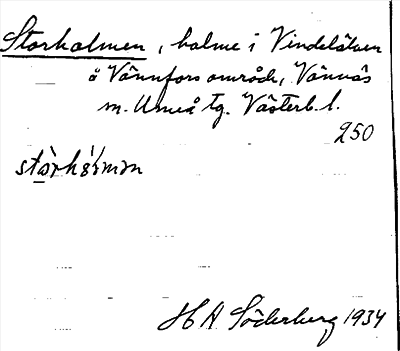 Storholmen, holme i Vindelälven
å Vännfors område, Vännäs
m. Umeå tg. Västerb. l.
250
H A Söderberg 1934